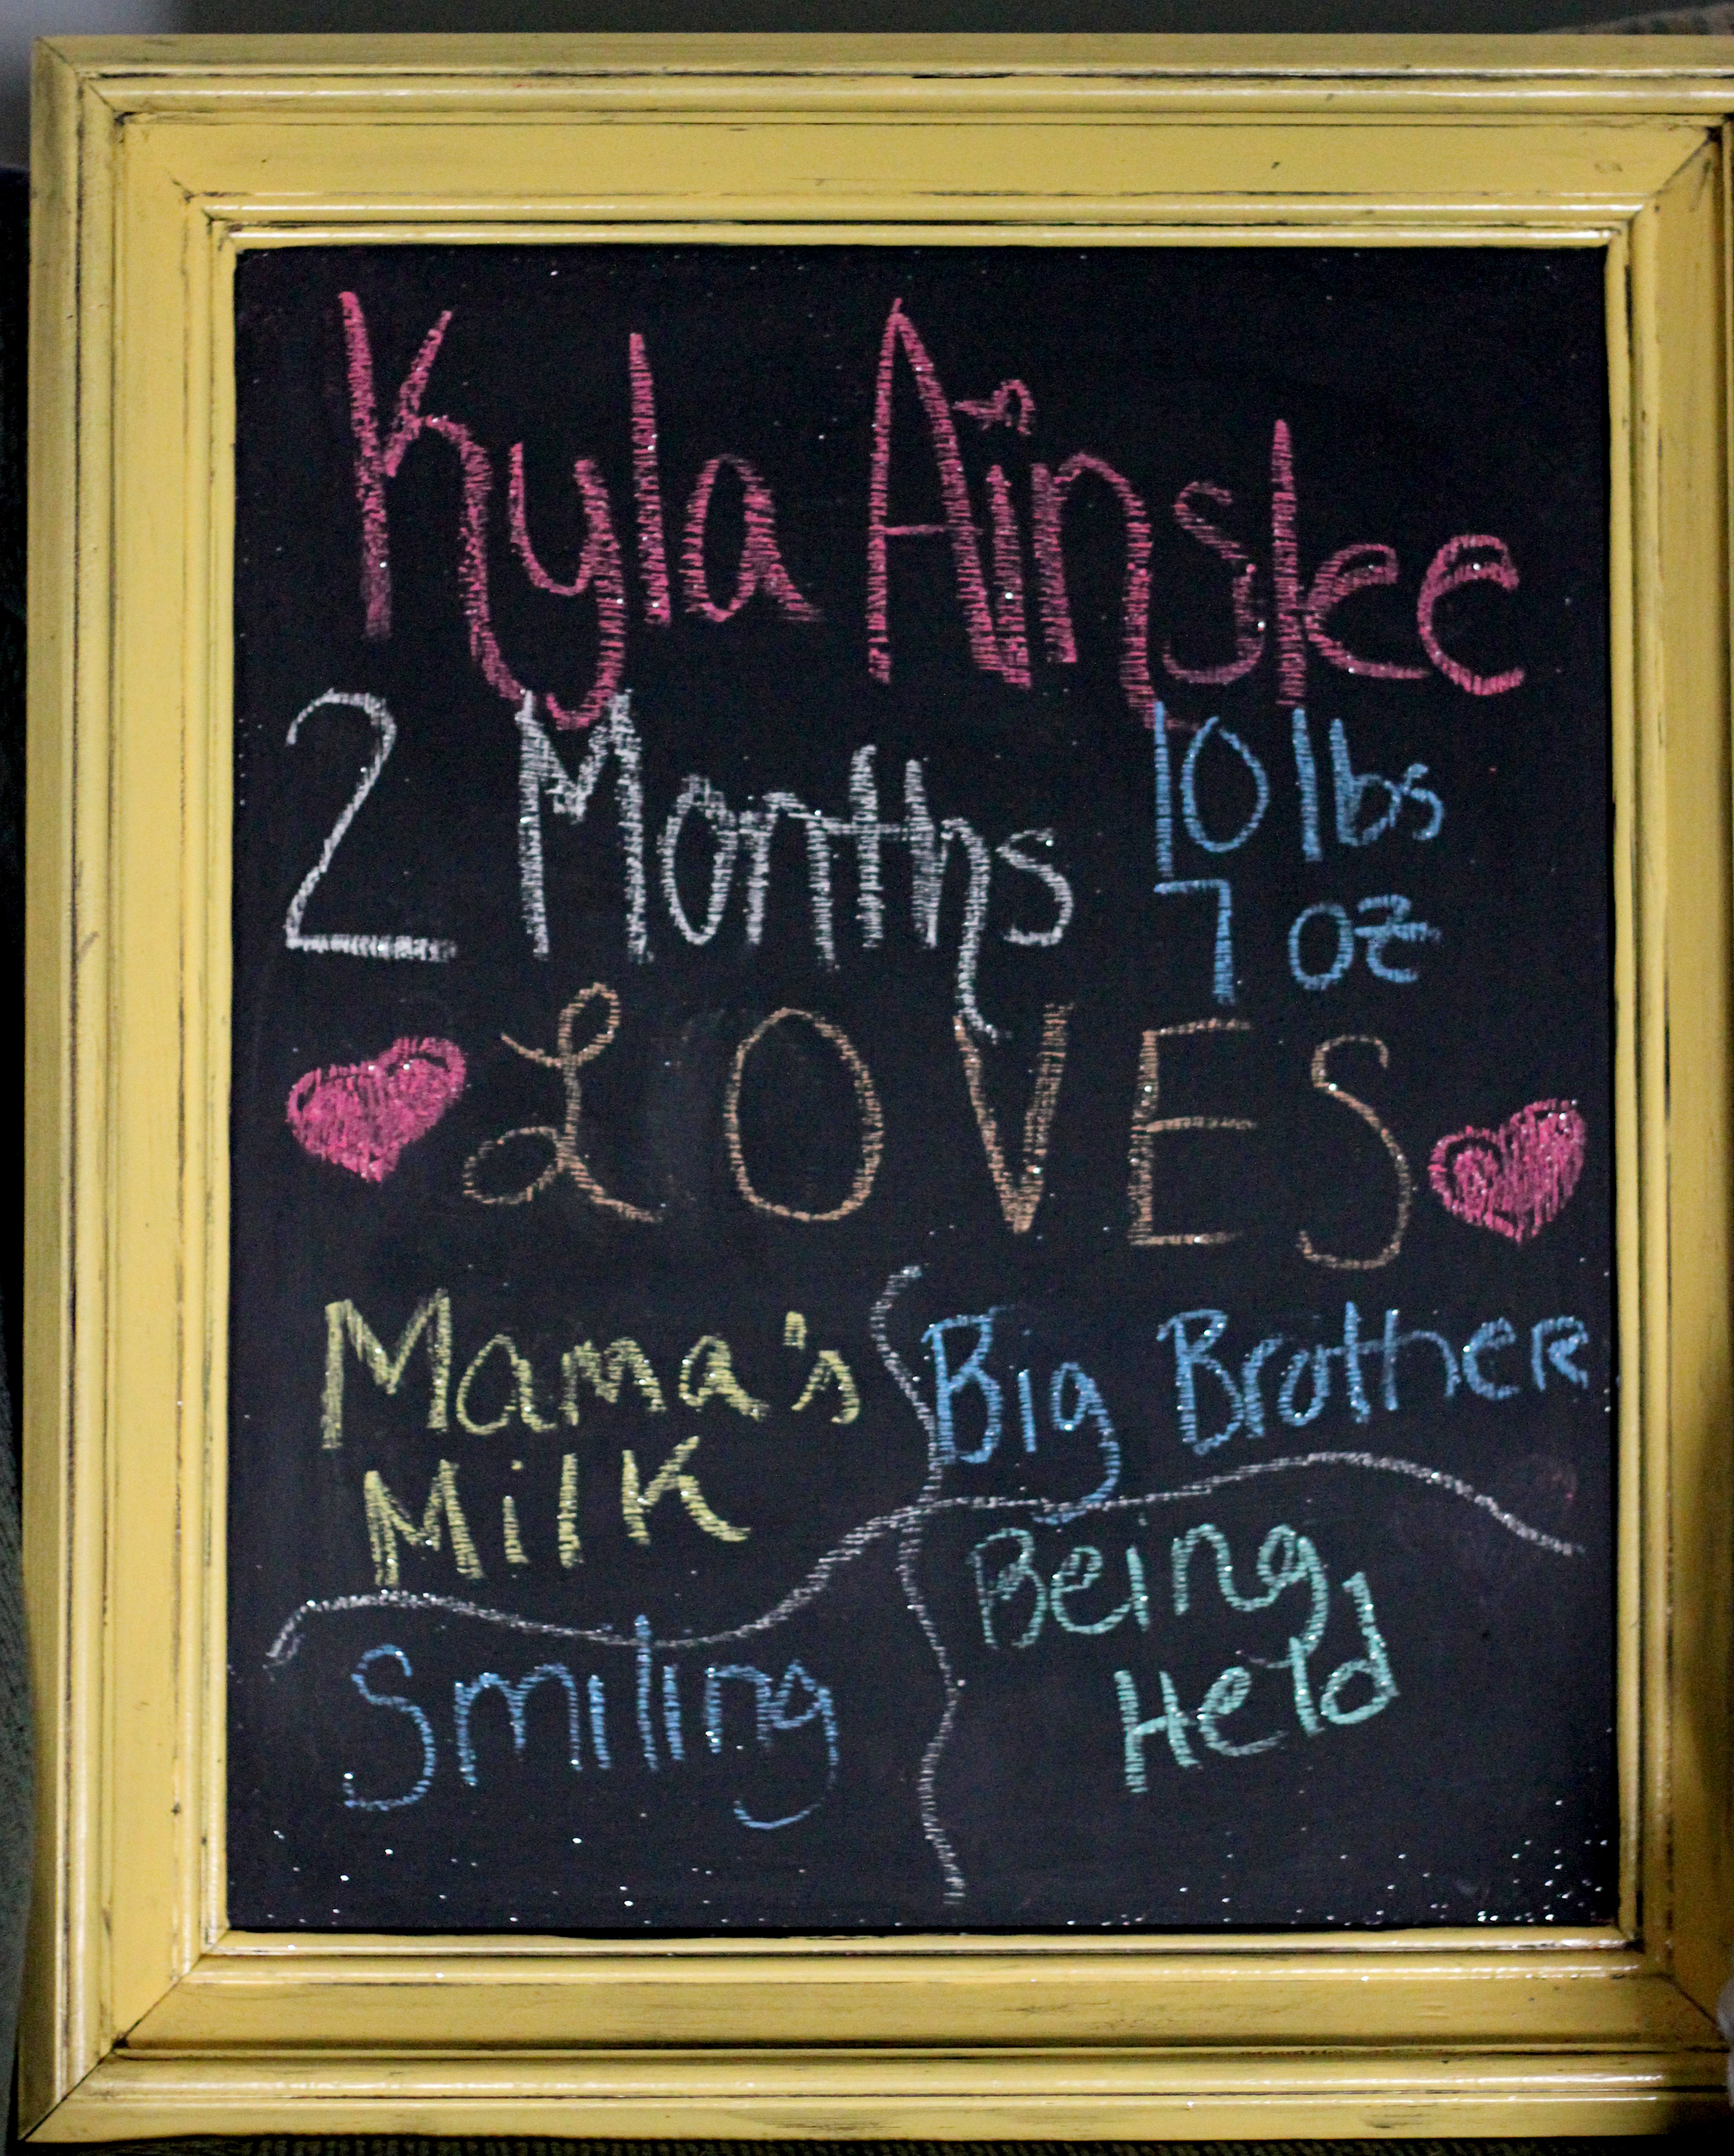 Kyla Ainslee
2 Months 10 lbs
7 oz
LOVES
Mama's Big Brother
Milk
Being
Smiling Held